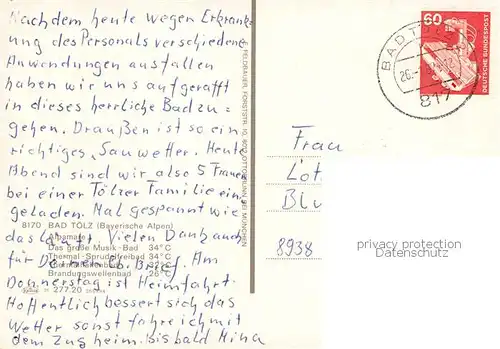 Nachdem heute wegen Erkrank-
ung des Personals verschiedene
Anwendungen ausfallen
haben wir uns aufgerafft
in dieses herrliche Bad zu=
gehen. Draußen ist so ein
richtiges "Sauwetter. Heute
Abend sind wir also 5 Frauen
bei einer Tölzer Familie ein
geladen. Mal gespannt wie
8170 BAD TÖLZ (Bayerische Alpen)
Alpamare
das läuft. Vielen Dank auch
Das große Musik-Bad 34°C
Thermal-Sprudelfreibad 34°C
für Deinen Brief. Am
Brandungswellenbad 26°C
Donnerstag ist Heimfahrt.
277.20
Hoffentlich bessert sich das
Wetter sonst fahre ich mit
dem Zug heim. bis bald Mina
FELDBAUER, FORSTSTR. 10, 8012 OTTOBRUNN BEI MÜNCHEN
60
DEUTSCHE BUNDESPOST
BAD TÖLZ
817
Frau
Lot
Blu
8938
privacy protection
Datenschutz